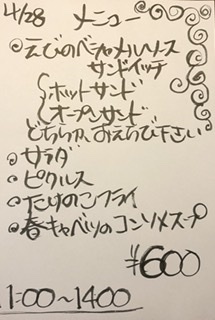 4/28 メニュー
◎えびのベシャメルソース
サンドイッチ
{ホットサンド
オープンサンド
どちらか、おえらび下さい
◎サラダ
◎ピクルス
◎たけのこフライ
◎春キャベツのコンソメスープ
¥600
11:00〜1400